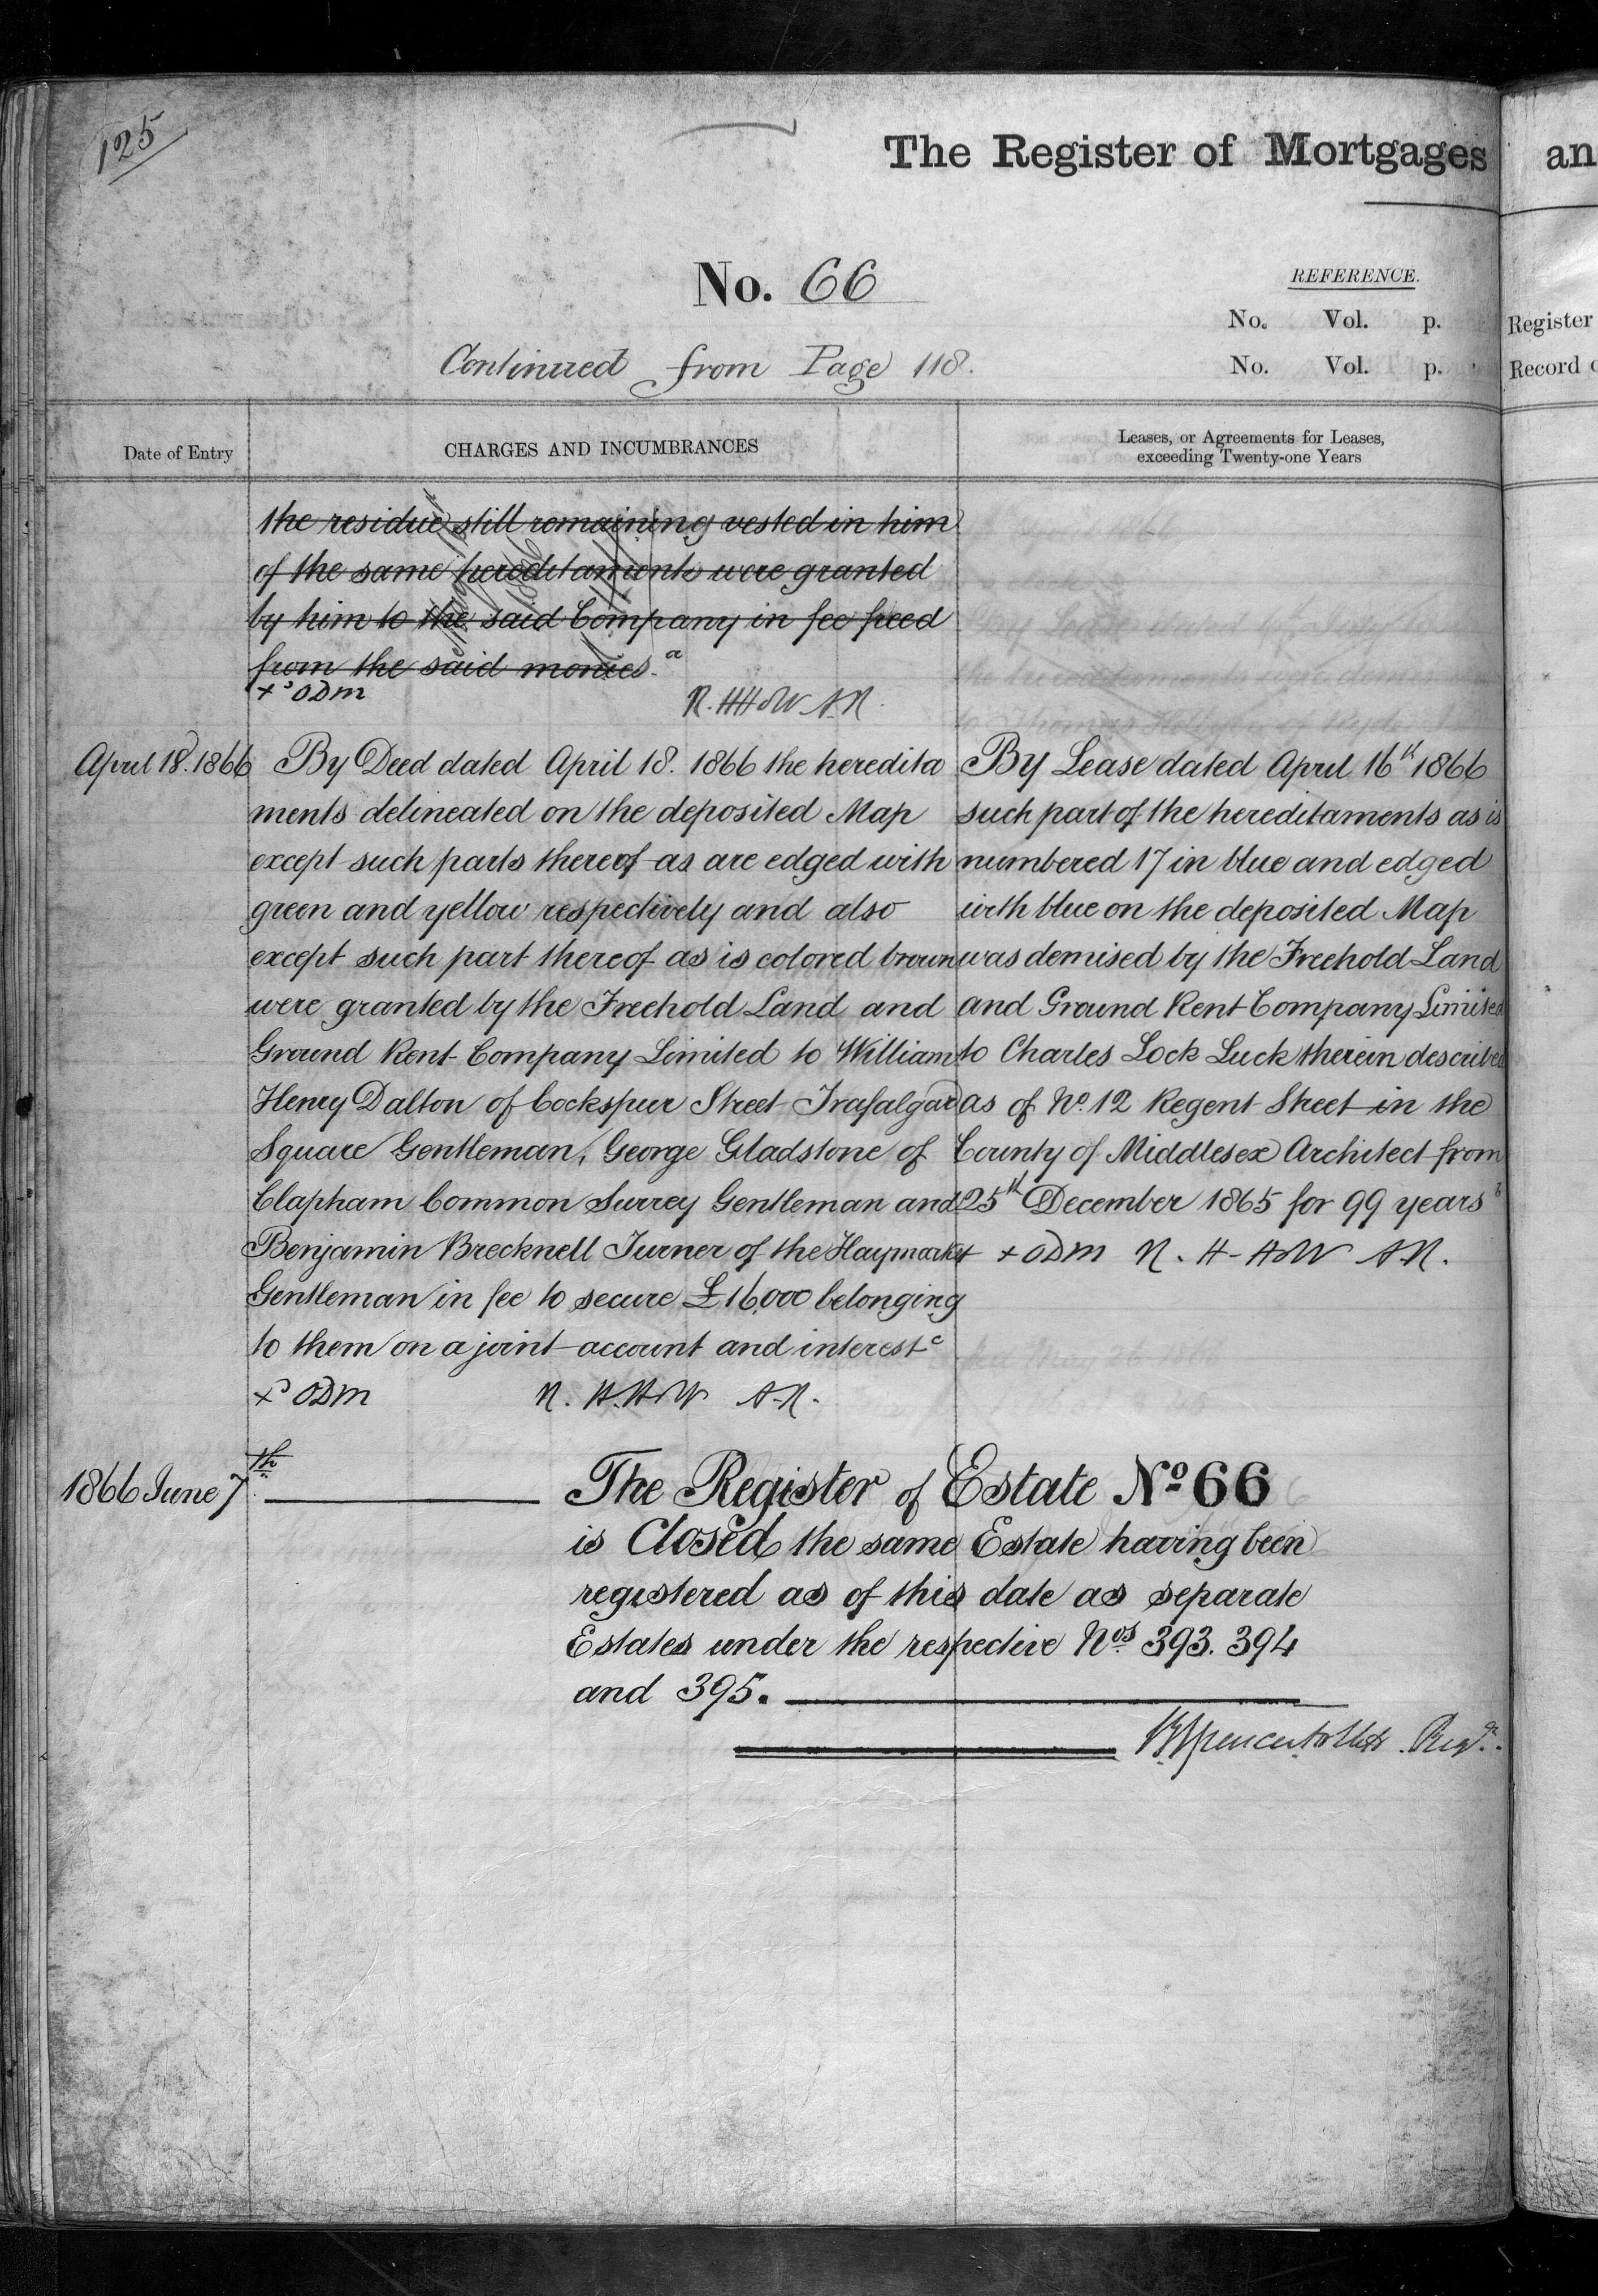 125
The Register of Mortgages
an
No. 66
REFERENCE.
No. Vol. p.
Register
Continued from Page 118.
No. Vol. p.
Record
Date of Entry
CHARGES AND INCUMBRANCES
Leases, or Agreements for Leases,
exceeding Twenty-one Years
the residue still remaining vested in him
of the same hereditaments were granted
by him to the said Company in fee freed
from the said monies. a
April 18. 1866
By Deed dated April 18. 1866 the heredita
ments delineated on the deposited Map
except such parts thereof as are edged with
green and yellow respectively and also
except such part thereof as is colored brown
were granted by the Freehold Land and
Ground Rent Company Limited to William
Henry Dalton of Cockspur Street Trafalgar
Square Gentleman, George Gladstone of
Clapham Common Surrey Gentleman and
Benjamin Brecknell Turner of the Haymarket
Gentleman in fee to secure £16,000 belonging
to them on a joint account and interest c
By Lease dated April 16th 1866
such part of the hereditaments as is
numbered 17 in blue and edged
with blue on the deposited Map
was demised by the Freehold Land
and Ground Rent Company Limited
to Charles Lock Luck therein described
as of No. 12 Regent Street in the
County of Middlesex Architect from
25th December 1865 for 99 years b
1866 June 7th
The Register of Estate No 66
is Closed the same Estate having been
registered as of this date as separate
Estates under the respective Nos 393. 394
and 395.